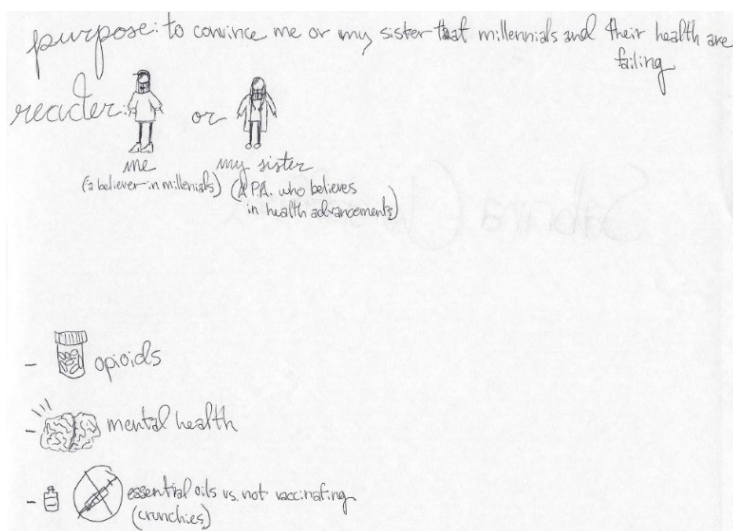 purpose: to convince me or my sister that millennials and their health are
failing
reader: or
me my sister
(a believer in millenials) (A PA. who believes
in health advancements)
- opioids
- mental health
- essential oils vs. not vaccinating
(crunchies)